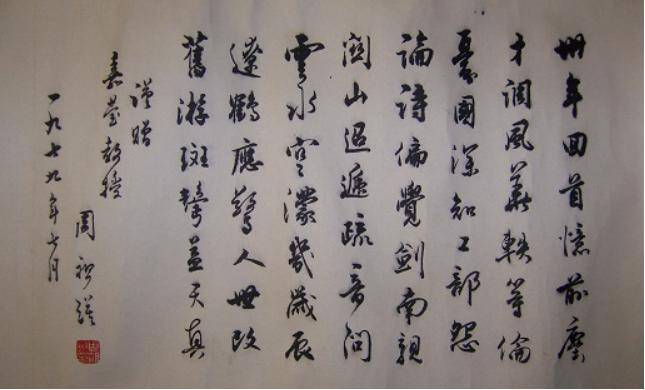 卌年回首憶前塵
才調風華軼等倫
憂國深知工部怨
論詩偏覺劍南親
關山迢遞疏音問
雲水空濛幾歲辰
遼鶴應驚人世改
舊游斑鬢益天真
謹贈
嘉瑩教授
周祖謨
一九七九年七月